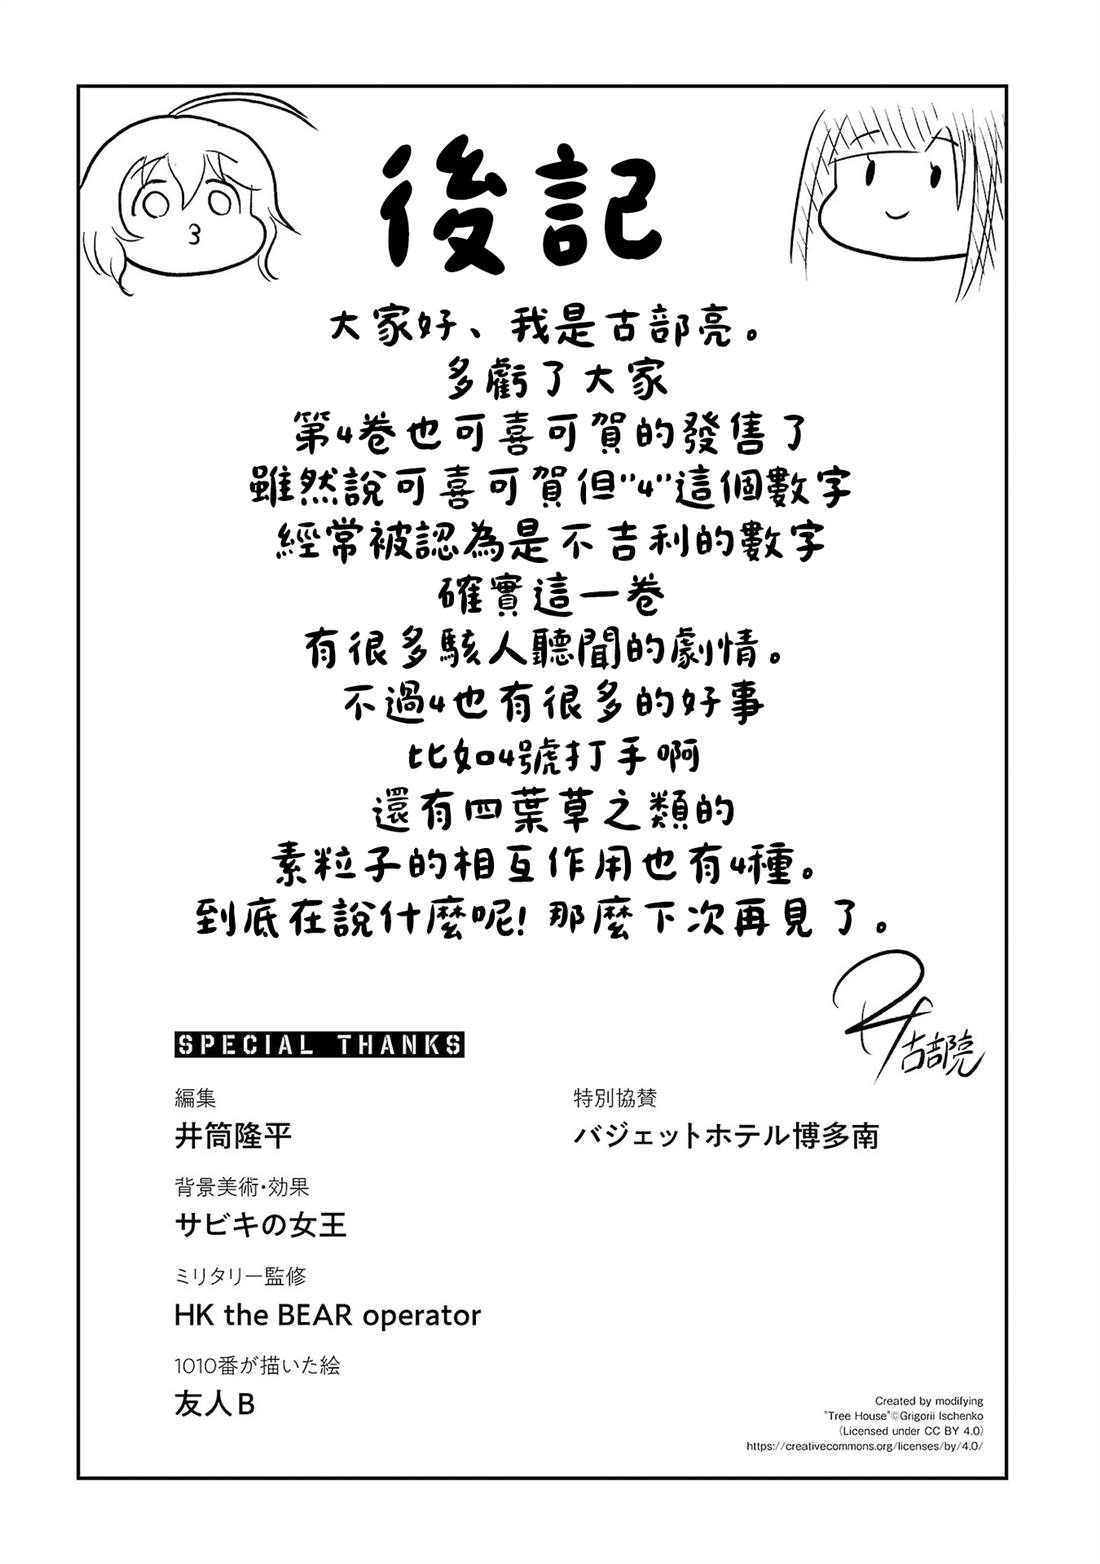 後記
大家好、我是古部亮。
多虧了大家
第4卷也可喜可賀的發售了
雖然說可喜可賀但"4"這個數字
經常被認為是不吉利的數字
確實這一卷
有很多駭人聽聞的劇情。
不過4也有很多的好事
比如4號打手啊
還有四葉草之類的
素粒子的相互作用也有4種。
到底在說什麼呢!那麼下次再見了。
古部亮
SPECIAL THANKS
編集
井筒隆平
背景美術・効果
サビキの女王
ミリタリー監修
HK the BEAR operator
1010番が描いた絵
友人B
特別協賛
バジェットホテル博多南
Created by modifying
"Tree House"©Grigorii Ischenko
(Licensed under CC BY 4.0)
https://creativecommons.org/licenses/by/4.0/